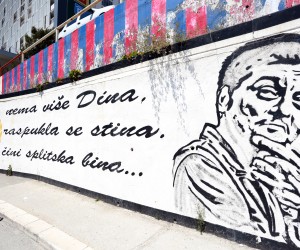 nema više Dina,
raspukla se stina,
čini splitska bina...